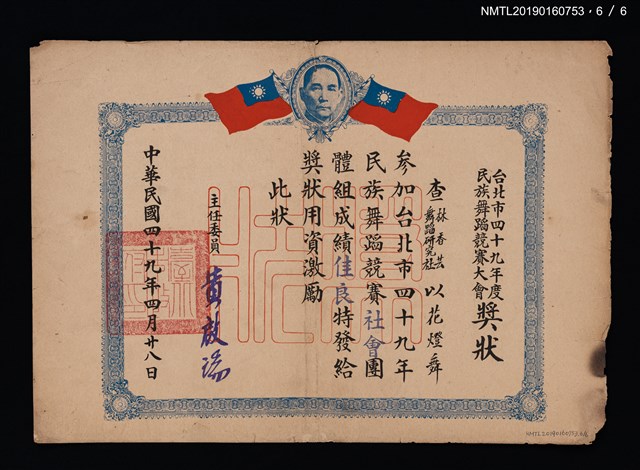 NMTL20190160753，6 / 6
台北市四十九年度
民族舞蹈競賽大會
獎狀
查
林香芸
舞蹈研究社
以花燈舞
參加台北市四十九年
民族舞蹈競賽社會團
體組成績佳良特發給
獎狀用資激勵
此狀
主任委員
黃啟瑞
中華民國四十九年四月廿八日